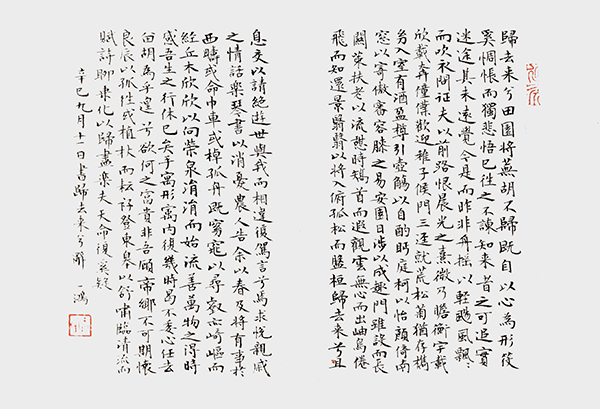 歸去來兮田園將蕪胡不歸既自以心為形役
奚惆悵而獨悲悟已往之不諫知來者之可追實
迷途其未遠覺今是而昨非舟搖以輕颺風飄〻
而吹衣問征夫以前路恨晨光之熹微乃瞻衡宇載
欣載奔僮僕歡迎稚子候門三逕就荒松菊猶存攜
幼入室有酒盈樽引壺觴以自酌眄庭柯以怡顏倚南
窓以寄傲審容膝之易安園日涉以成趣門雖設而長
關策扶老以流憩時矯首而遐觀雲無心而出岫鳥倦
飛而知還景翳翳以將入撫孤松而盤桓歸去來兮且
息交以請絕遊世與我而相違復駕言兮焉求悅親戚
之情話樂琴書以消憂農人告余以春及將有事於
西疇或命巾車或棹孤舟既窈窕以尋壑亦崎嶇而
經丘木欣欣以向榮泉涓涓而始流善萬物之得時
感吾生之行休已矣乎寓形宇內復幾時曷不委心任去
留胡為乎遑〻兮欲何之富貴非吾願帝鄉不可期懷
良辰以孤往或植杖而耘耔登東皋以舒嘯臨清流而
賦詩聊乘化以歸盡樂夫天命復奚疑
辛巳九月十一日書歸去來兮辭 一鴻